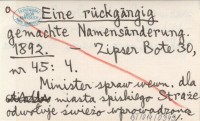 Eine rückgängig
gemachte Namensänderung.
1892. – Zipser Bote 30,
nr 45: 4.
Minister spraw wewn. dla
miasta spiskiego Straże
odwołuje świeżo wprowadzoną